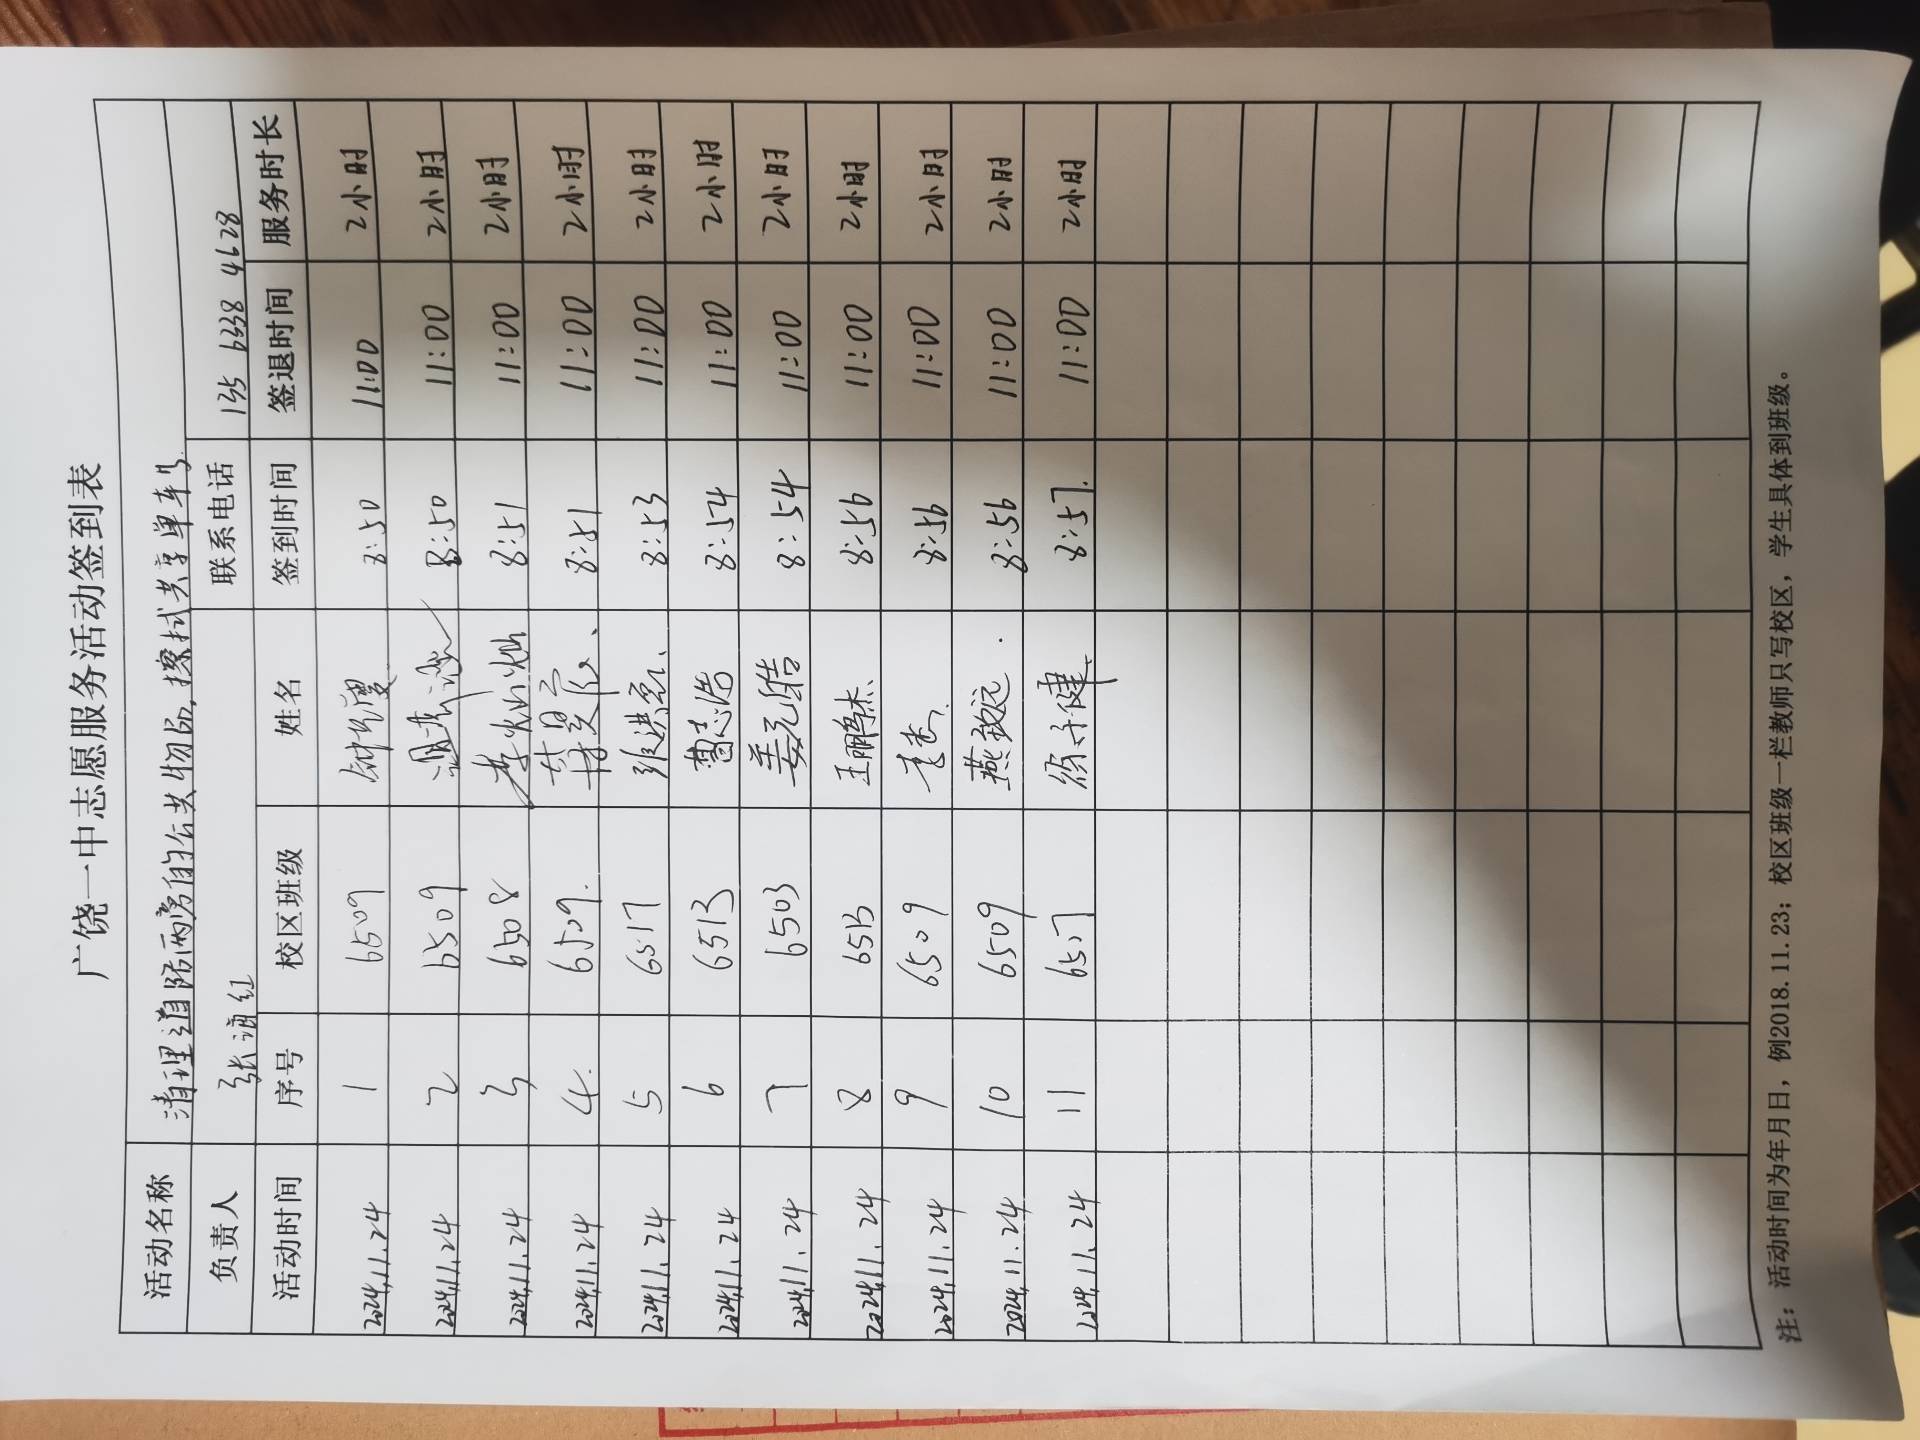 广饶一中志愿服务活动签到表
活动名称 清理道路两旁的公共物品,擦拭共享单车
负责人 张海红 联系电话 135 6338 4628
活动时间 序号 校区班级 姓名 签到时间 签退时间 服务时长
2024.11.24 1 6509 8:50 11:00 2小时
2024.11.24 2 6509 8:50 11:00 2小时
2024.11.24 3 6508 李灿灿 8:51 11:00 2小时
2024.11.24 4. 6509. 8:51 11:00 2小时
2024.11.24 5 6517 8:53 11:00 2小时
2024.11.24 6 6513 曹志浩 8:54 11:00 2小时
2024.11.24 7 6503 姜元结 8:54 11:00 2小时
2024.11.24 8 6513 王鹏杰 8:56 11:00 2小时
2024.11.24 9 6509 8:56 11:00 2小时
2024.11.24 10 6509 燕致远 8:56 11:00 2小时
2024.11.24 11 6517 徐子健 8:57. 11:00 2小时
注：活动时间为年月日，例2018.11.23；校区班级一栏教师只写校区，学生具体到班级。